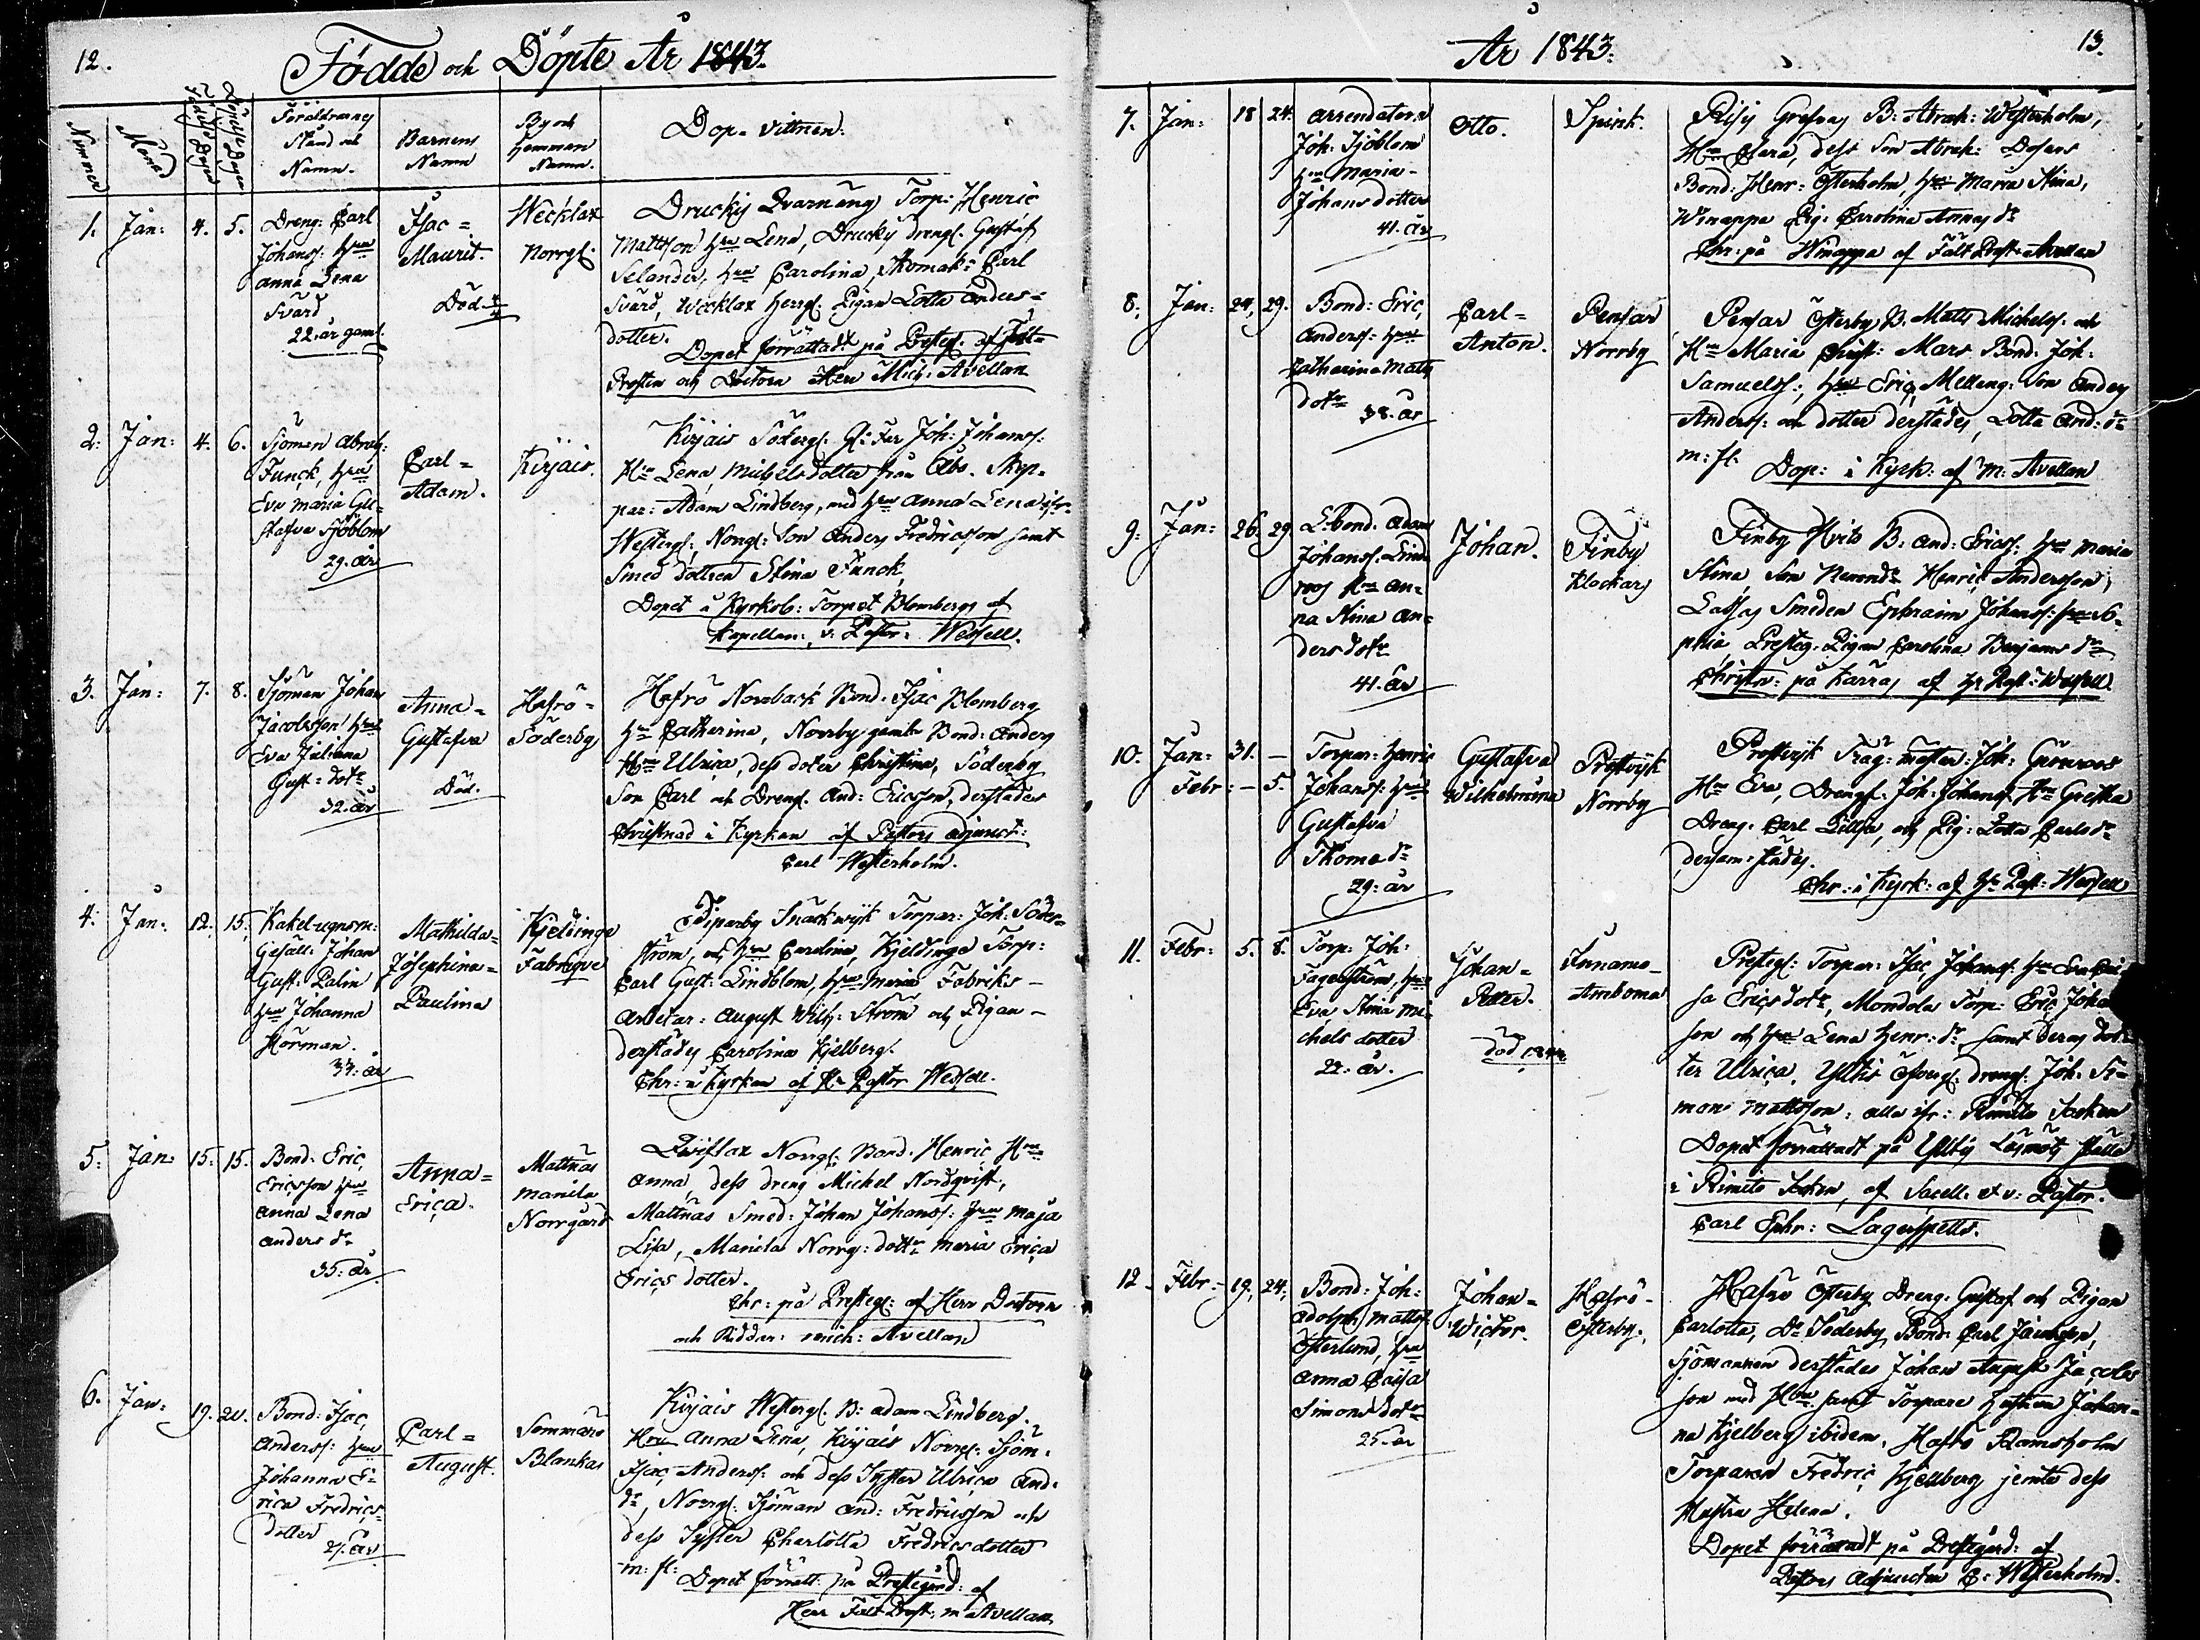 12.
Födde och Döpte År 1843.
Nummer
Månad
Födelse Dagen
Döpelse Dagen
Föräldrarnes
Stånd och
Namn.
Barnens
Namn
By och
Hemman
Namn.
Dop-Vittnen.
1. Jan: 4. 5.
Dreng: Carl
Johanss: Hru
Anna Lena
Svärd
22. år gaml.
Isac=
Maurit.
Död.
Wecklax
Norrgl.
Druckis Qvarnäng Torp: Henric
Mattsson Hru Lena, Druckis drengl. Gustaf
Selander, Hru Carolina, Skomak: Carl
Svärd, Wecklax Herrgl. Pigan Lotta Anders=
dotter.
Dopet förrättadt på Presteg. af Fält=
Prosten och Doctorn Herr Mich: Avellan
2. Jan: 4. 6.
Sjöman Abrah:
Funck, Hru
Eva Maria Gu=
stafva Sjöblom
29. år
Carl=
Adam.
Kirjais.
Kirjais Södergl. Joh: Johanss:
Hru Lena, Michelsdotter från Åbo. Skep=
par: Adam Lindberg, med Hru Anna Lena ifr.
Westergl., Norrgl: Son Anders Fredricsson samt
Smed dottren Stina Funck,
Dopet å Kyrkob: Torpet Blombergs af
Kapellan:, v: Pastor: Wessell.
3. Jan: 7. 8.
Sjöman Johan
Jacobsson Hru
Eva Juliana
Gust: dotr
32. år
Anna=
Gustafva
Död.
Hafrö=
Söderby
Hafrö Norrback Bond: Isac Blomberg
Hru Catharina, Norrby gamla Bond: Anders
Hru Ulrica, dess doter Christina, Söderby
Son Carl och Drengl. And: Ericsson, derstädes
Christnad i Kyrkan af Pastors adjunct:
Carl Westerholm.
4. Jan: 12. 15.
Kakelugnsm:
Gesäll: Johan
Gust: Palin
Hru Johanna
Hörman.
34. år
Mathilda=
Josephina=
Paulina
Kjeldinge
Fabrique
Diparby Snäckwijk Torpar: Joh: Söder=
ström, och Hru Carolina, Kjeldinge Torp:
Carl Gust: Lindblom, Hru Maria Fabriks-
Arbetar: August Wilh: Ström och Pigan-
derstädes Carolina Kjelberg.
Chr: i Kyrkan af Hr Pastor Wessell.
5. Jan: 15. 15.
Bond: Eric
Ericsson Hru
Anna Lena
Anders dr
35. år
Anna=
Erica.
Mattnäs
Manila
Norrgård
Qviflax Norrgl: Bond: Henric Hru
Anna, dess dreng Michel Nordqvist,
Mattnäs Smed: Johan Johanss: Hru Maja
Lisa, Manila Norrg: dottr Maria Erica
Erics dotter.
Chr: på Presteg: af Herr Doctorn
och Riddar: Mich: Avellan
6. Jan: 19. 20.
Bond: Isac
Anderss: Hru
Johanna E=
rica Fredrics=
dotter
27. år
Carl=
August.
Sommarö
Blankas
Kirjais Westergl. B: Adam Lindberg.
Hru Anna Lena, Kirjais Norrgl: Sjöm:
Isac Anderss: och dess Syster Ulrica And:
dr, Norrgl: Sjöman And: Fredricsson och
dess Syster Charlotta Fredricsdotter
m: fl: Dopet förrätt: på Prestegård: af
Herr Fält Prost: M Avellan.
År 1843.
13.
7. Jan: 18 24.
Arrendatorn
Joh: Sjöblom
Hru Maria-
Johansdotter
41. år
Otto.
Spink.
Risis Grefvas B: Abrah: Westerholm,
Hru Clara, dess Son Abrah: Dosans
Bond: Henr: Österholm, Hru Maria Stina,
Winappa Pig: Carolina Annas dr
Chr: på Winappa af Fält Prost: Avellan
8. Jan: 24. 29.
Bond: Eric
Anderss: Hru
Catharina Mats
dotr 38. år
Carl=
Anton.
Pensar
Norrby
Pensar Österby B: Matts Michelss: och
Hru Maria Christ: Mars. Bond: Joh:
Samuelss:, Hru Eric Melleng: Son Anders
Anderss: och dotter derstädes, Lotta And: dr
m: fl. Dop: i Kyrk: af M: Avellan
9. Jan: 26. 29.
L:bond: Adam
Johanss: Lind
roos Hru An=
na Stina An=
dersdotr
41. år
Johan.
Finby
Klockars
Finby Hvits B: And: Ericss: Hru Maria
Stina Son Henric Andersson,
Lassas Smeden Ephraim Johanss: Hru So=
phia, Presteg: Pigan Carolina Benjams dr
Christn: på Karras af Hr Past: Wessell.
10. Jan: 31. —
Febr: — 5.
Torpar: Henric
Johanss: Hru
Gustafva
Thoma dr
29. år
Gustafva
Wilhelmina
Prostvijk
Norrby
Prostvijk Träg: mäster: Joh: Grönroos
Hru Eva, Drengl: Joh: Johanss: Hru Gretha
Dreng: Carl Lillja, och Pig: Lotta Carls dr
dersam: städes.
Chr: i Kyrk: af Hr Past: Wessell
11. Febr: 5. 8.
Torp: Joh:
Fagerström, Hru
Eva Stina Mi=
chels dotter
22. år.
Johan=
Petter.
död 1844
Innamo-
Amboma
Presteg: Torpar: Isac Johanss: Hru Eva Cai
sa Ericsdotr, Mondola Torp: Eric Joha
son och Hru Lena Henr: dr samt deras dot=
ter Ulrica, Yltis Öfvergl: drengl: Joh: Si=
mon Mattsson: alla ifr: Rimito Socken
Dopet förrättadt på Yltis Läsmöts ställe
i Rimito Socken, af Sacell: et v: Pastor.
Carl Ephr: Lagerspetts.
12 Febr: 19. 24.
Bond: Joh:
Adolph Mattss
Österlund, Hru
Anna Caisa
Simonsdotr
25. år
Johan=
Wictor.
Hafrö-
Österby.
Hafrö Österby Dreng: Gustaf och Pigan
Carlotta, Do Söderby Bond: Carl
Sjömannen derstädes Johan August Jacobs
son med Hru samt Torpare hustrun Johan=
na Kjelberg ibidem, Hafrö Ramsholm
Torparen Fredric Kjellberg jemte dess
Hustru Helena.
Dopet förrättadt på Prestegård: af
Pastors Adjuncten C: Westerholm.